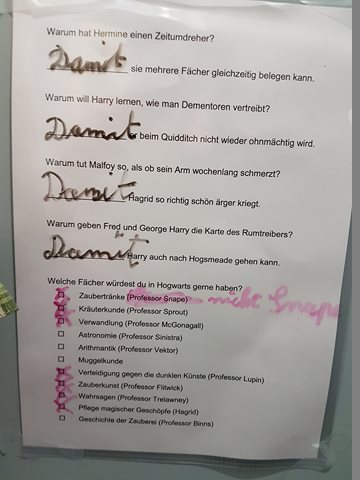 Warum hat Hermine einen Zeitumdreher?
Damit sie mehrere Fächer gleichzeitig belegen kann.
Warum will Harry lernen, wie man Dementoren vertreibt?
Damit er beim Quidditch nicht wieder ohnmächtig wird.
Warum tut Malfoy so, als ob sein Arm wochenlang schmerzt?
Damit Hagrid so richtig schön ärger kriegt.
Warum geben Fred und George Harry die Karte des Rumtreibers?
Damit Harry auch nach Hogsmeade gehen kann.
Welche Fächer würdest du in Hogwarts gerne haben?
Zaubertränke (Professor Snape) nicht Snape
Kräuterkunde (Professor Sprout)
Verwandlung (Professor McGonagall)
Astronomie (Professor Sinistra)
Arithmantik (Professor Vektor)
Muggelkunde
Verteidigung gegen die dunklen Künste (Professor Lupin)
Zauberkunst (Professor Flitwick)
Wahrsagen (Professor Trelawney)
Pflege magischer Geschöpfe (Hagrid)
Geschichte der Zauberei (Professor Binns)